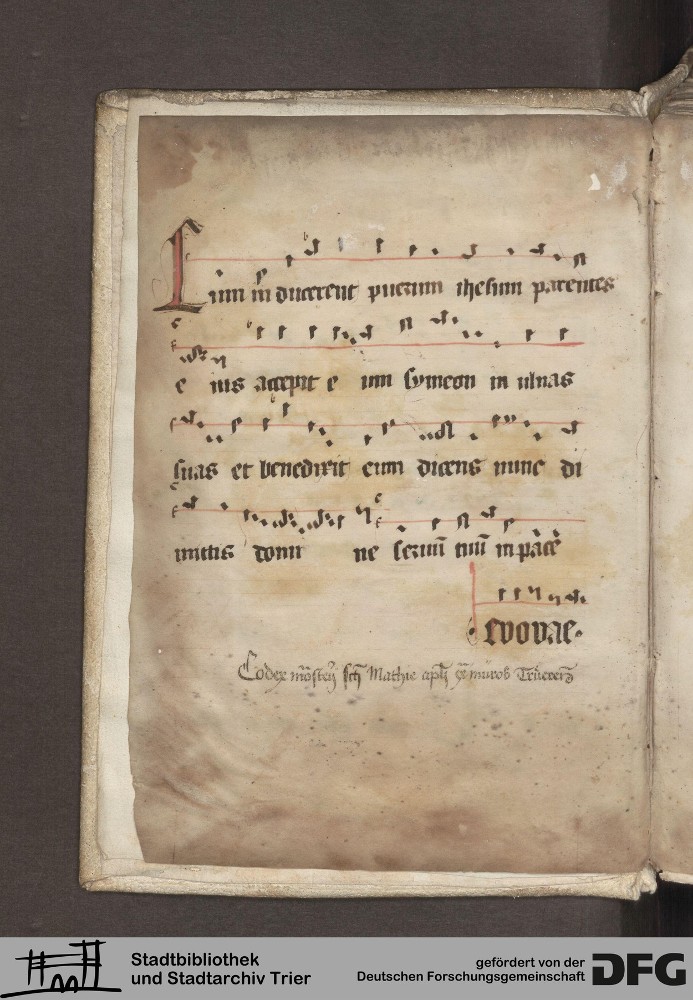 Cum inducerent puerum ihesum parentes
e ius accepit e um symeon in ulnas
suas et benedixit eum dicens nunc di
mittis domi ne seruū tuū in pace
evovae.
Codex Mathie muros
Stadtbibliothek
und Stadtarchiv Trier
gefördert von der
Deutschen Forschungsgemeinschaft
DFG